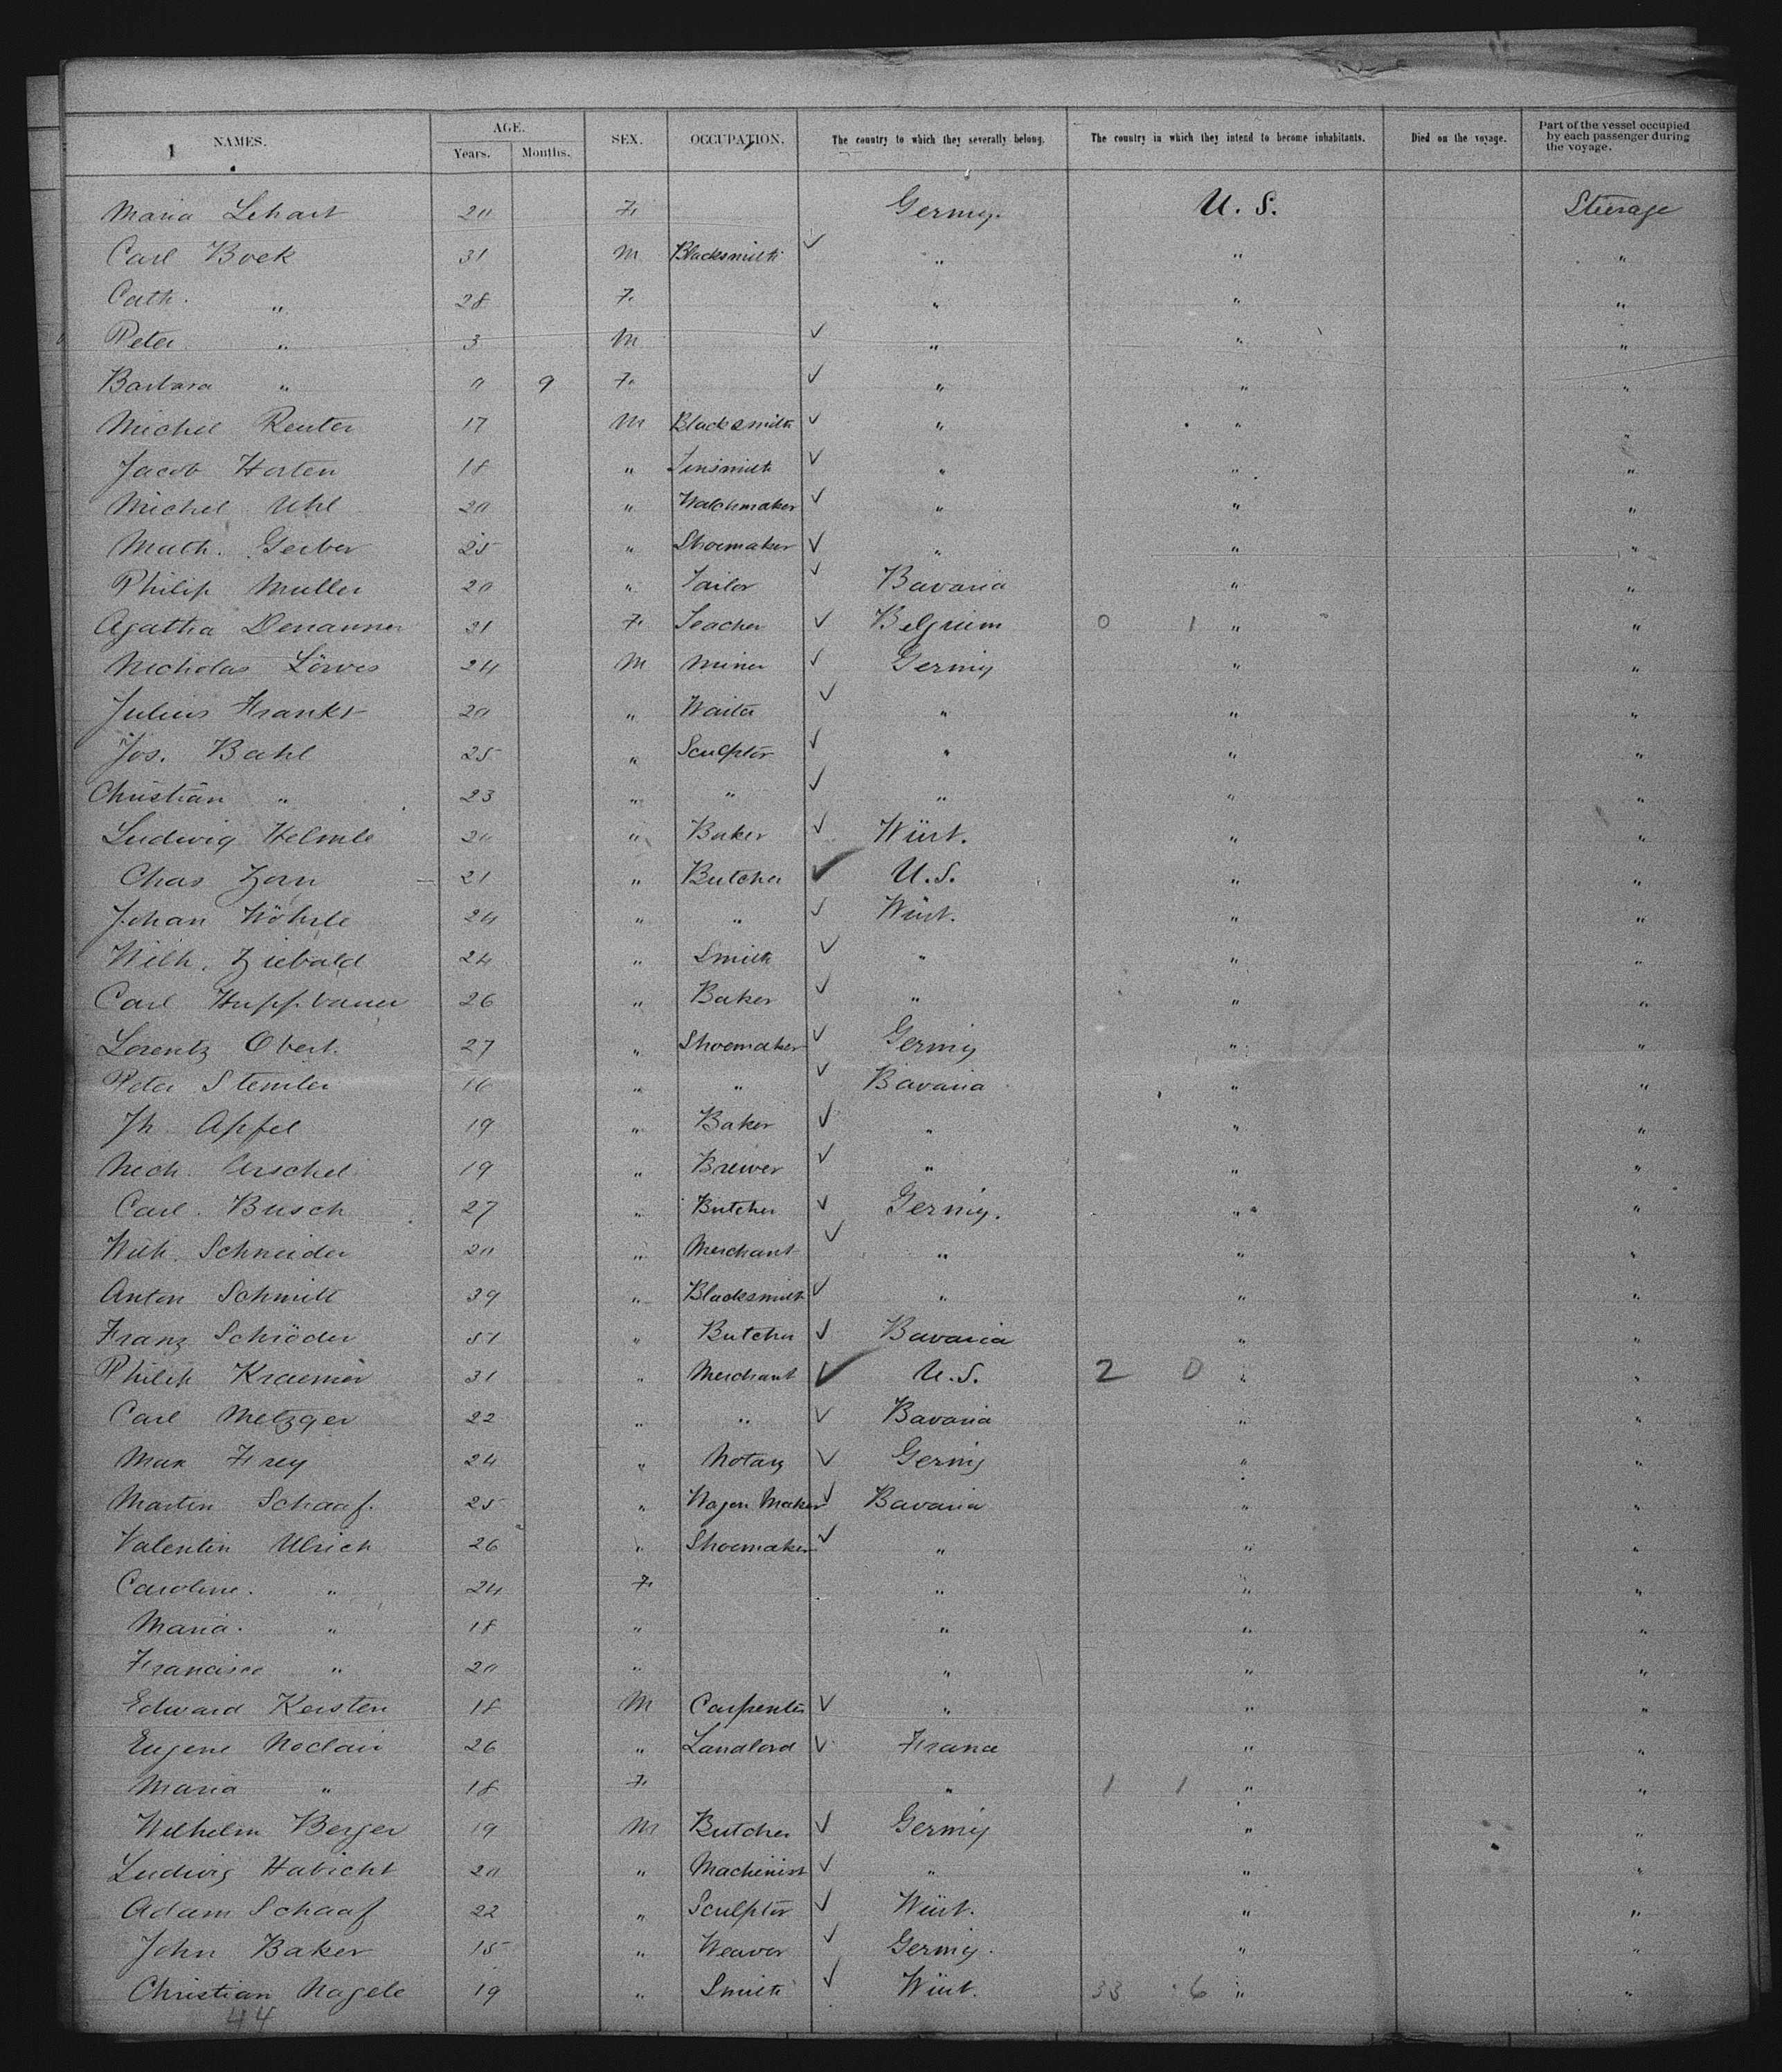 NAMES. AGE. SEX. OCCUPATION. The country to which they severally belong. The country in which they intend to become inhabitants. Died on the voyage. Part of the vessel occupied by each passenger during the voyage.
Years. Months.
Maria Lehart 20 F. Germy. U. S. Steerage
Carl Bock 31 M Blacksmith ✓ " " "
Cath. " 28 F. " " "
Peter " 3 M ✓ " " "
Barbara " 0 9 F. ✓ " " "
Michel Reuter 17 M Blacksmith ✓ " " "
Jacob Horten 18 " Tinsmith ✓ " " "
Michel Uhl 20 " Watchmaker ✓ " " "
Math. Gerber 25 " Shoemaker ✓ " " "
Philip Muller 20 " Tailor ✓ Bavaria " "
Agatha 21 F. Teacher ✓ Belgium 0 1 " "
Nicholas Löwes 24 M Miner ✓ Germy " "
Julius 20 " Waiter ✓ " " "
Jos. Bahl 25 " Sculptor ✓ " " "
Christian " 23 " " ✓ " " "
Ludwig Helmle 20 " Baker ✓ Würt. " "
Chas Zorn 21 " Butcher ✓ U.S. " "
Johan Wöhrle 24 " " ✓ Würt. " "
Wilh. Ziebald 24 " Smith ✓ " " "
Carl Huppbauer 26 " Baker ✓ " " "
Lorentz Obert. 27 " Shoemaker ✓ Germy " "
Peter Stemler 16 " " ✓ Bavaria " "
Jh. Apfel 19 " Baker ✓ " " "
Mich. Urschel 19 " Brewer ✓ " " "
Carl. Busch 27 " Butcher ✓ Germy. " "
Wilh. Schneider 20 " Merchant ✓ " " "
Anton Schmitt 39 " Blacksmith ✓ " " "
Franz Schröder 51 " Butcher ✓ Bavaria " "
Philip Kraemer 31 " Merchant ✓ U.S. 2 0 " "
Carl Metzger 22 " " ✓ Bavaria " "
Max Frey 24 " Notary ✓ Germy " "
Martin Schaaf. 25 " Wagon Maker ✓ Bavaria " "
Valentin Ulrich 26 " Shoemaker ✓ " " "
Caroline. " 24 F. " " "
Maria. " 18 " " " "
Francisca " 20 " " " "
Edward Kersten 18 M Carpenter ✓ " " "
Eugene Noclair 26 " Landlord ✓ France " "
Maria " 18 F. " 1 1 " "
Wilhelm Berger 19 M Butcher ✓ Germy " "
Ludwig Habicht 20 " Machinist ✓ " " "
Adam Schaaf 22 " Sculptor ✓ Würt. " "
John Baker 15 " Weaver ✓ Germy. " "
Christian Nagele 19 " Smith ✓ Würt. 33 6 " "
44